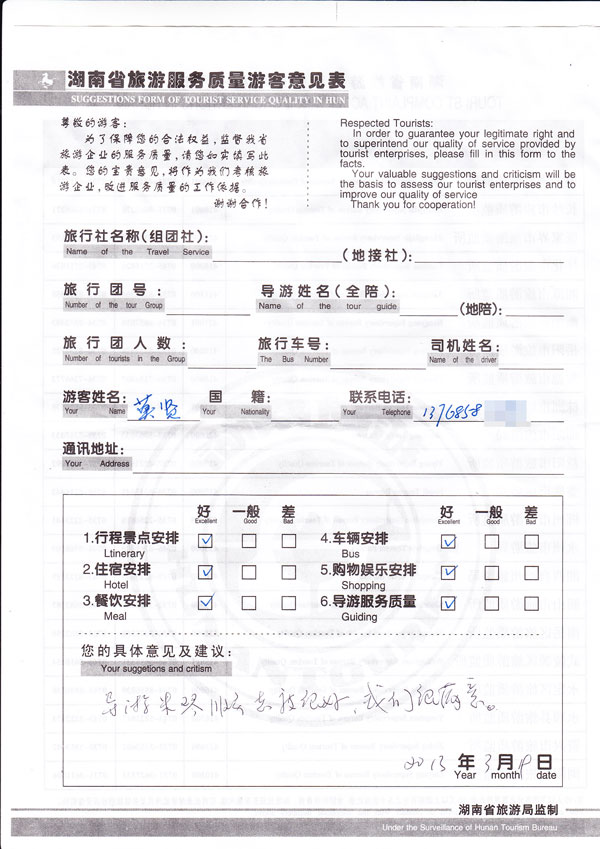 湖南省旅游服务质量游客意见表
SUGGESTIONS FORM OF TOURIST SERVICE QUALITY IN HUN
尊敬的游客：
为了保障您的合法权益，监督我省
旅游企业的服务质量，请您如实填写此
表。您的宝贵意见，将作为我们考核旅
游企业，改进服务质量的工作依据。
谢谢合作！
Respected Tourists:
In order to guarantee your legitimate right and
to superintend our quality of service provided by
tourist enterprises, please fill in this form to the
facts.
Your valuable suggestions and criticism will be
the basis to assess our tourist enterprises and to
improve our quality of service
Thank you for cooperation!
旅行社名称(组团社)： (地接社)：
Name of the Travel Service
旅行团号： 导游姓名(全陪)： (地陪)：
Number of the tour Group Name of the tour guide
旅行团人数： 旅行车号： 司机姓名：
Number of tourists in the Group The Bus Number Name of the driver
游客姓名： 国籍： 联系电话： 1376858
Your Name Your Nationality Your Telephone
通讯地址：
Your Address
好 一般 差 好 一般 差
Excellent Good Bad Excellent Good Bad
1.行程景点安排 4.车辆安排
Ltinerary Bus
2.住宿安排 5.购物娱乐安排
Hotel Shopping
3.餐饮安排 6.导游服务质量
Meal Guiding
您的具体意见及建议：
Your suggetions and critism
导游 很好，我们很满意。
2013 年 3 月 19 日
Year month date
湖南省旅游局监制
Under the Surveillance of Hunan Tourism Bureau